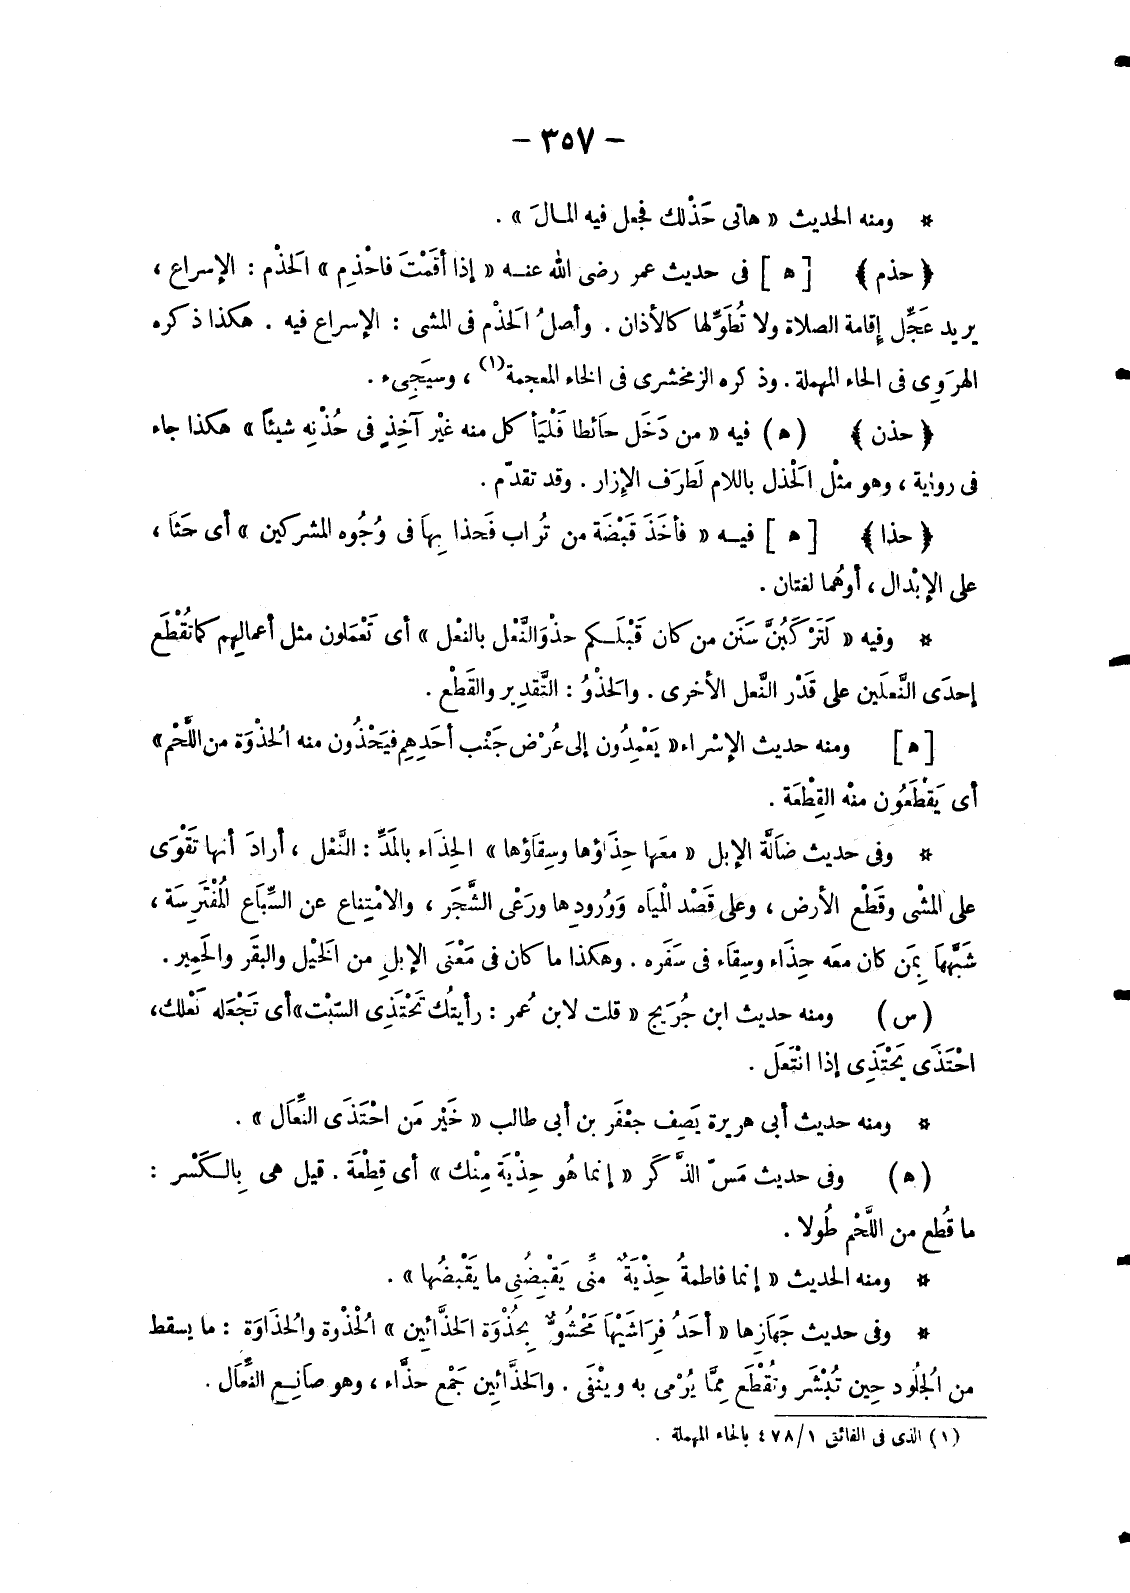 — ٣٥٧ —
* ومنه الحديث « هاتى حَذْلك فجعل فيه المـالَ » .
﴿ حذم ﴾ [ ه ] فى حديث عمر رضى الله عنـه « إذا أقَمْتَ فاحْذِم » الَحذْم : الإسراع ،
يريد عَجِّل إقامة الصلاة ولا تُطَوِّلها كالأذان . وأصلُ الَحذْم فى المشى : الإسراع فيه . هكذا ذكره
الهرَوِى فى الحاء المهملة . وذكره الزمخشرى فى الخاء المعجمة(١) ، وسيَجِىء .
﴿ حذن ﴾ (ه) فيه « من دَخَل حَائطا فَلْيَأكل منه غيْر آخِذٍ فى حُذْنِه شيئاً » هكذا جاء
فى رواية ، وهو مثْل الَحْذل باللام لَطَرَف الإزار . وقد تقدّم .
﴿ حذا ﴾ [ ه ] فيـه « فأخَذَ قَبْضَة من تُراب فَحذا بِهاَ فى وُجُوه المشركين » أى حَثاَ ،
على الإبْدال ، أوهُما لغتان .
* وفيه « لَتَرْكَبُنَّ سَنَن من كان قَبْلَـكم حذْوَالنَّعْل بالنعْل » أى تَعْمَلون مثل أعمالِهم كماتُقْطَع
إحدَى النَّعلَين على قَدْر النَّعل الأخرى . والَحذْوُ : التَّقدير والقَطْع .
[ ه ] ومنه حديث الإسْراء « يَعْمِدُون إلى عُرْض جَنْب أحَدِهِم فيَحْذُون منه الُحذْوَة من اللَّحْم »
أى يَقْطَعُون منْه القِطْعَة .
* وفى حديث ضَالَّة الإبل « معَها حِذَاؤها وسِقاَؤها » الحِذَاء بالَمدِّ : النَّعْل ، أرادَ أنها تَقْوَى
على المْشى وقَطْع الأرض ، وعلى قَصْد الْمياَه وَوُرودِها ورَعْى الشَّجَر ، والامْتِناع عن السِّبَاع الُمْفْتَرِسَة ،
شَبَّهَهاَ بِمَن كان معَه حِذَاء وسِقاَء فى سَفَره . وهكذا ما كان فى مَعْنَى الإبلِ من الَخيْل والبقَر والَحمِير .
(س) ومنه حديث ابن جُرَيج « قلت لابن عُمر : رأيتُك تَحْتَذِى السّبْت » أى تَجْعَله نَعْلك،
احْتَذَى يَحْتَذِى إذا انْتَعَلَ .
* ومنه حديث أبى هريرة يَصِف جعْفَر بن أبى طالب « خَيْر مَن احْتَذَى النِّعَال » .
(ه) وفى حديث مَسّ الذَّكَر « إنما هُو حِذْيَة مِنْك » أى قِطْعَة . قيل هى بِالـكَسْر :
ما قُطع من اللَّحْم طُولا .
* ومنه الحديث « إنما فاطمةُ حِذْيَةٌ منِّى يَقْبِضُنِى ما يَقْبِضُها » .
* وفى حديث جَهَازِها « أحَدُ فِرَاشَيْهَا مَحْشُوٌّ بِحُذْوَة الَحذَّائِين » الُحْذْوة والُحذَاوَة : ما يسقط
من الُجلُود حِين تُبْشَر وتُقْطَع مِمَّا يُرْمى به ويَنْفَى . والَحذَّائِين جَمْع حذَّاء ، وهو صاَنِـع النِّعَال .
(١) الذى فى الفائق ١/٤٧٨ بالحاء المهملة .